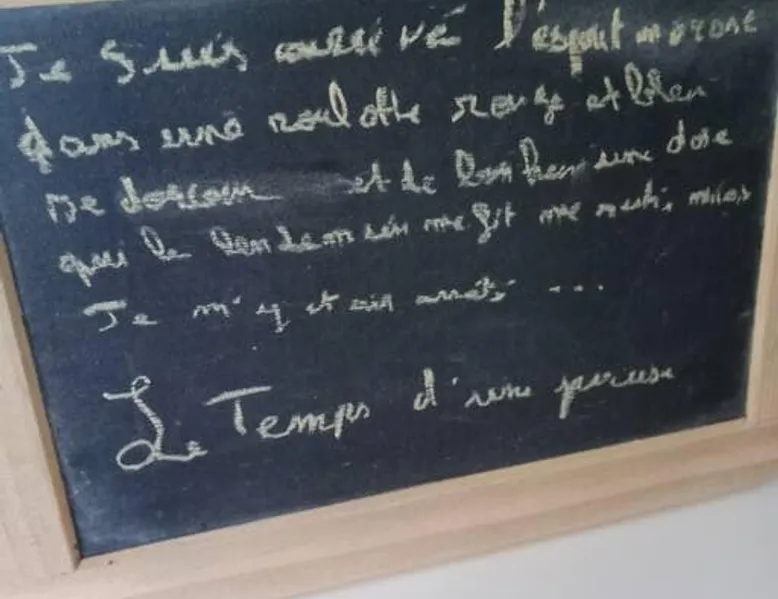 Je suis arrivé l'esprit morose
dans une roulotte rouge et bleu
de et de bonheur une dose
que le lendemain me fit me mais
Je m'y étais arrêté ...
Le Temps d'une pause